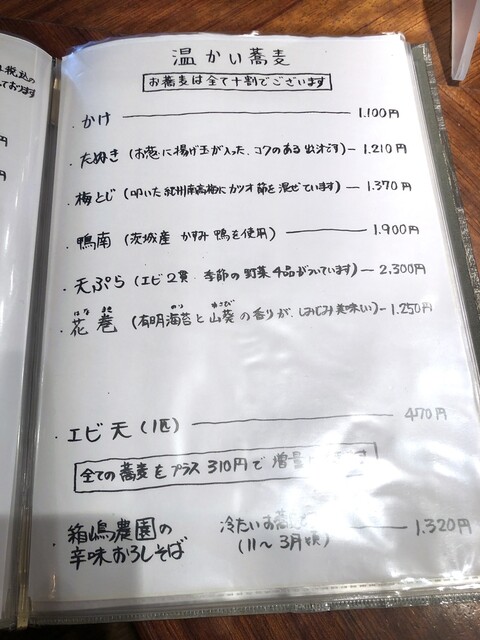 税込の
ております
円
円
温かい蕎麦
お蕎麦は全て十割でございます
・かけ 1.100円
・たぬき(お葱に揚げ玉が入った、コクのある出汁です) 1.210円
・梅とじ(叩いた紀州南高梅にカツオ節を混ぜています) 1.370円
・鴨南(茨城産 かすみ鴨を使用) 1.900円
・天ぷら(エビ2貫 季節の野菜4品がついています) 2,300円
はな まき のり わさび
・花巻(有明海苔と山葵の香りが、しみじみ美味い) 1.250円
・エビ天(1匹) 470円
全ての蕎麦をプラス310円で増量
・箱嶋農園の 冷たいお蕎麦 1.320円
辛味おろしそば (11〜3月頃)